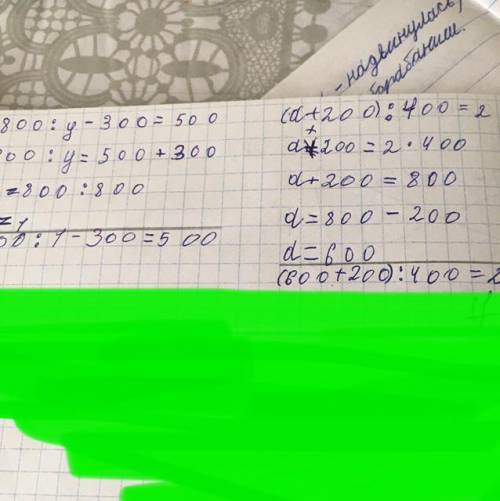 -надвинулась,
барабанили.
800 : y - 300 = 500
00 : y = 500 + 300
= 800 : 800
= 1
00 : 1 - 300 = 500
(d + 200) : 400 = 2
d + 200 = 2 · 400
d + 200 = 800
d = 800 - 200
d = 600
(600 + 200) : 400 = 2